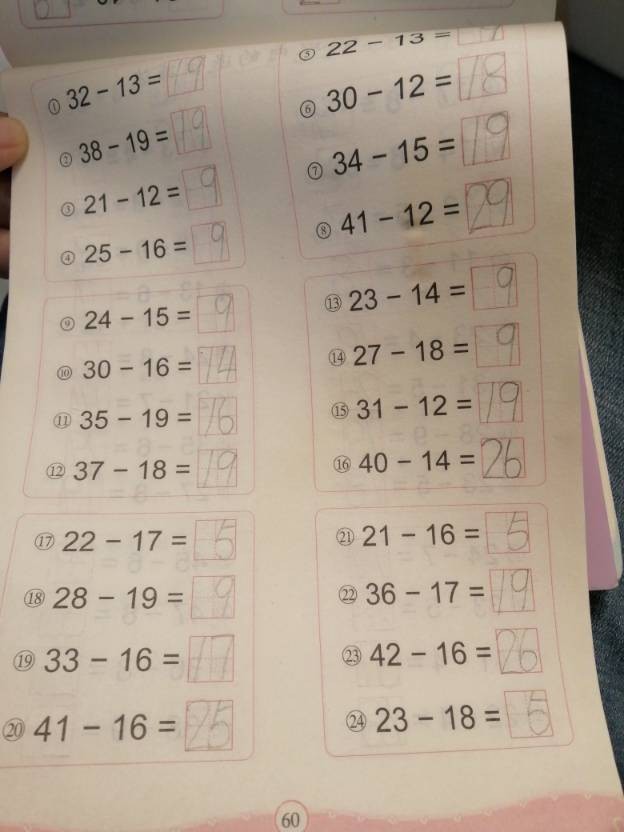 ① 32 - 13 = 19
② 38 - 19 = 19
③ 21 - 12 = 9
④ 25 - 16 = 9
⑤ 22 - 13 =
⑥ 30 - 12 = 18
⑦ 34 - 15 = 19
⑧ 41 - 12 = 29
⑨ 24 - 15 = 9
⑩ 30 - 16 = 14
⑪ 35 - 19 = 16
⑫ 37 - 18 = 19
⑬ 23 - 14 = 9
⑭ 27 - 18 = 9
⑮ 31 - 12 = 19
⑯ 40 - 14 = 26
⑰ 22 - 17 = 5
⑱ 28 - 19 = 9
⑲ 33 - 16 = 17
⑳ 41 - 16 = 25
㉑ 21 - 16 = 5
㉒ 36 - 17 = 19
㉓ 42 - 16 = 26
㉔ 23 - 18 = 5
60